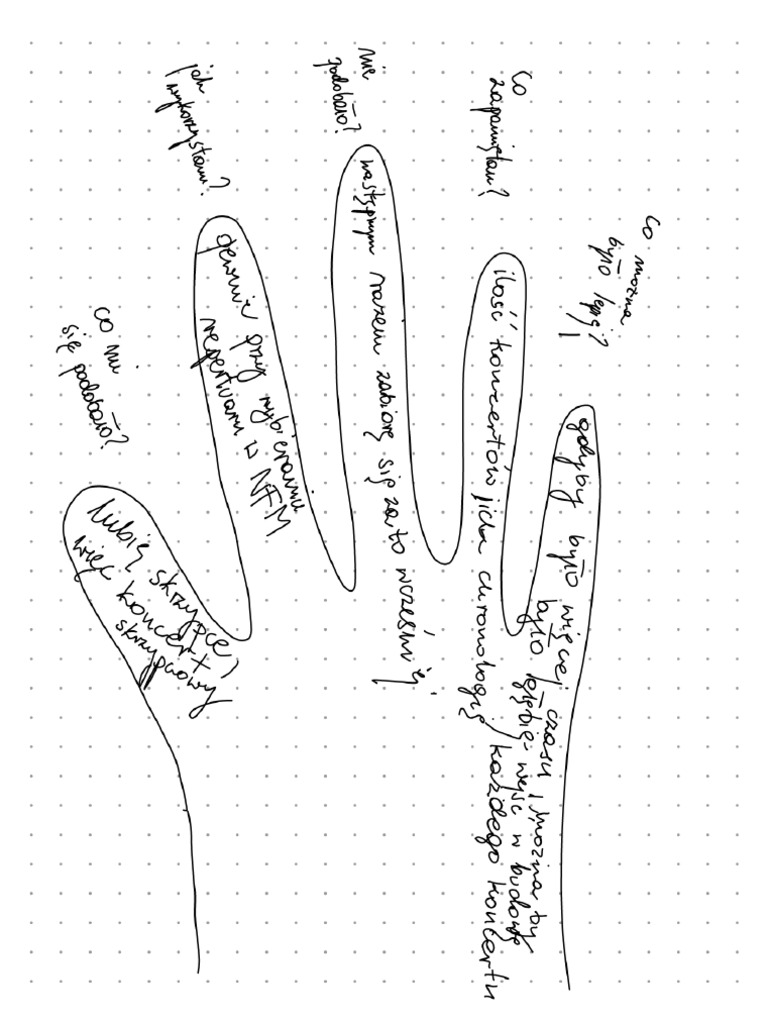 co mi
się podobało?
lubię skrzypce,
więc koncert
skrzypcowy
jak
wykorzystam?
pewnie przy wybieraniu
repertuaru w NFM
nie
podobało?
następnym razem zabiorę się za to wcześniej
co
zapamiętam?
ilość koncertów i ich chronologię każdego koncertu
co można
było lepiej?
gdyby było więcej czasu, można by
było głębiej wejść w budowę